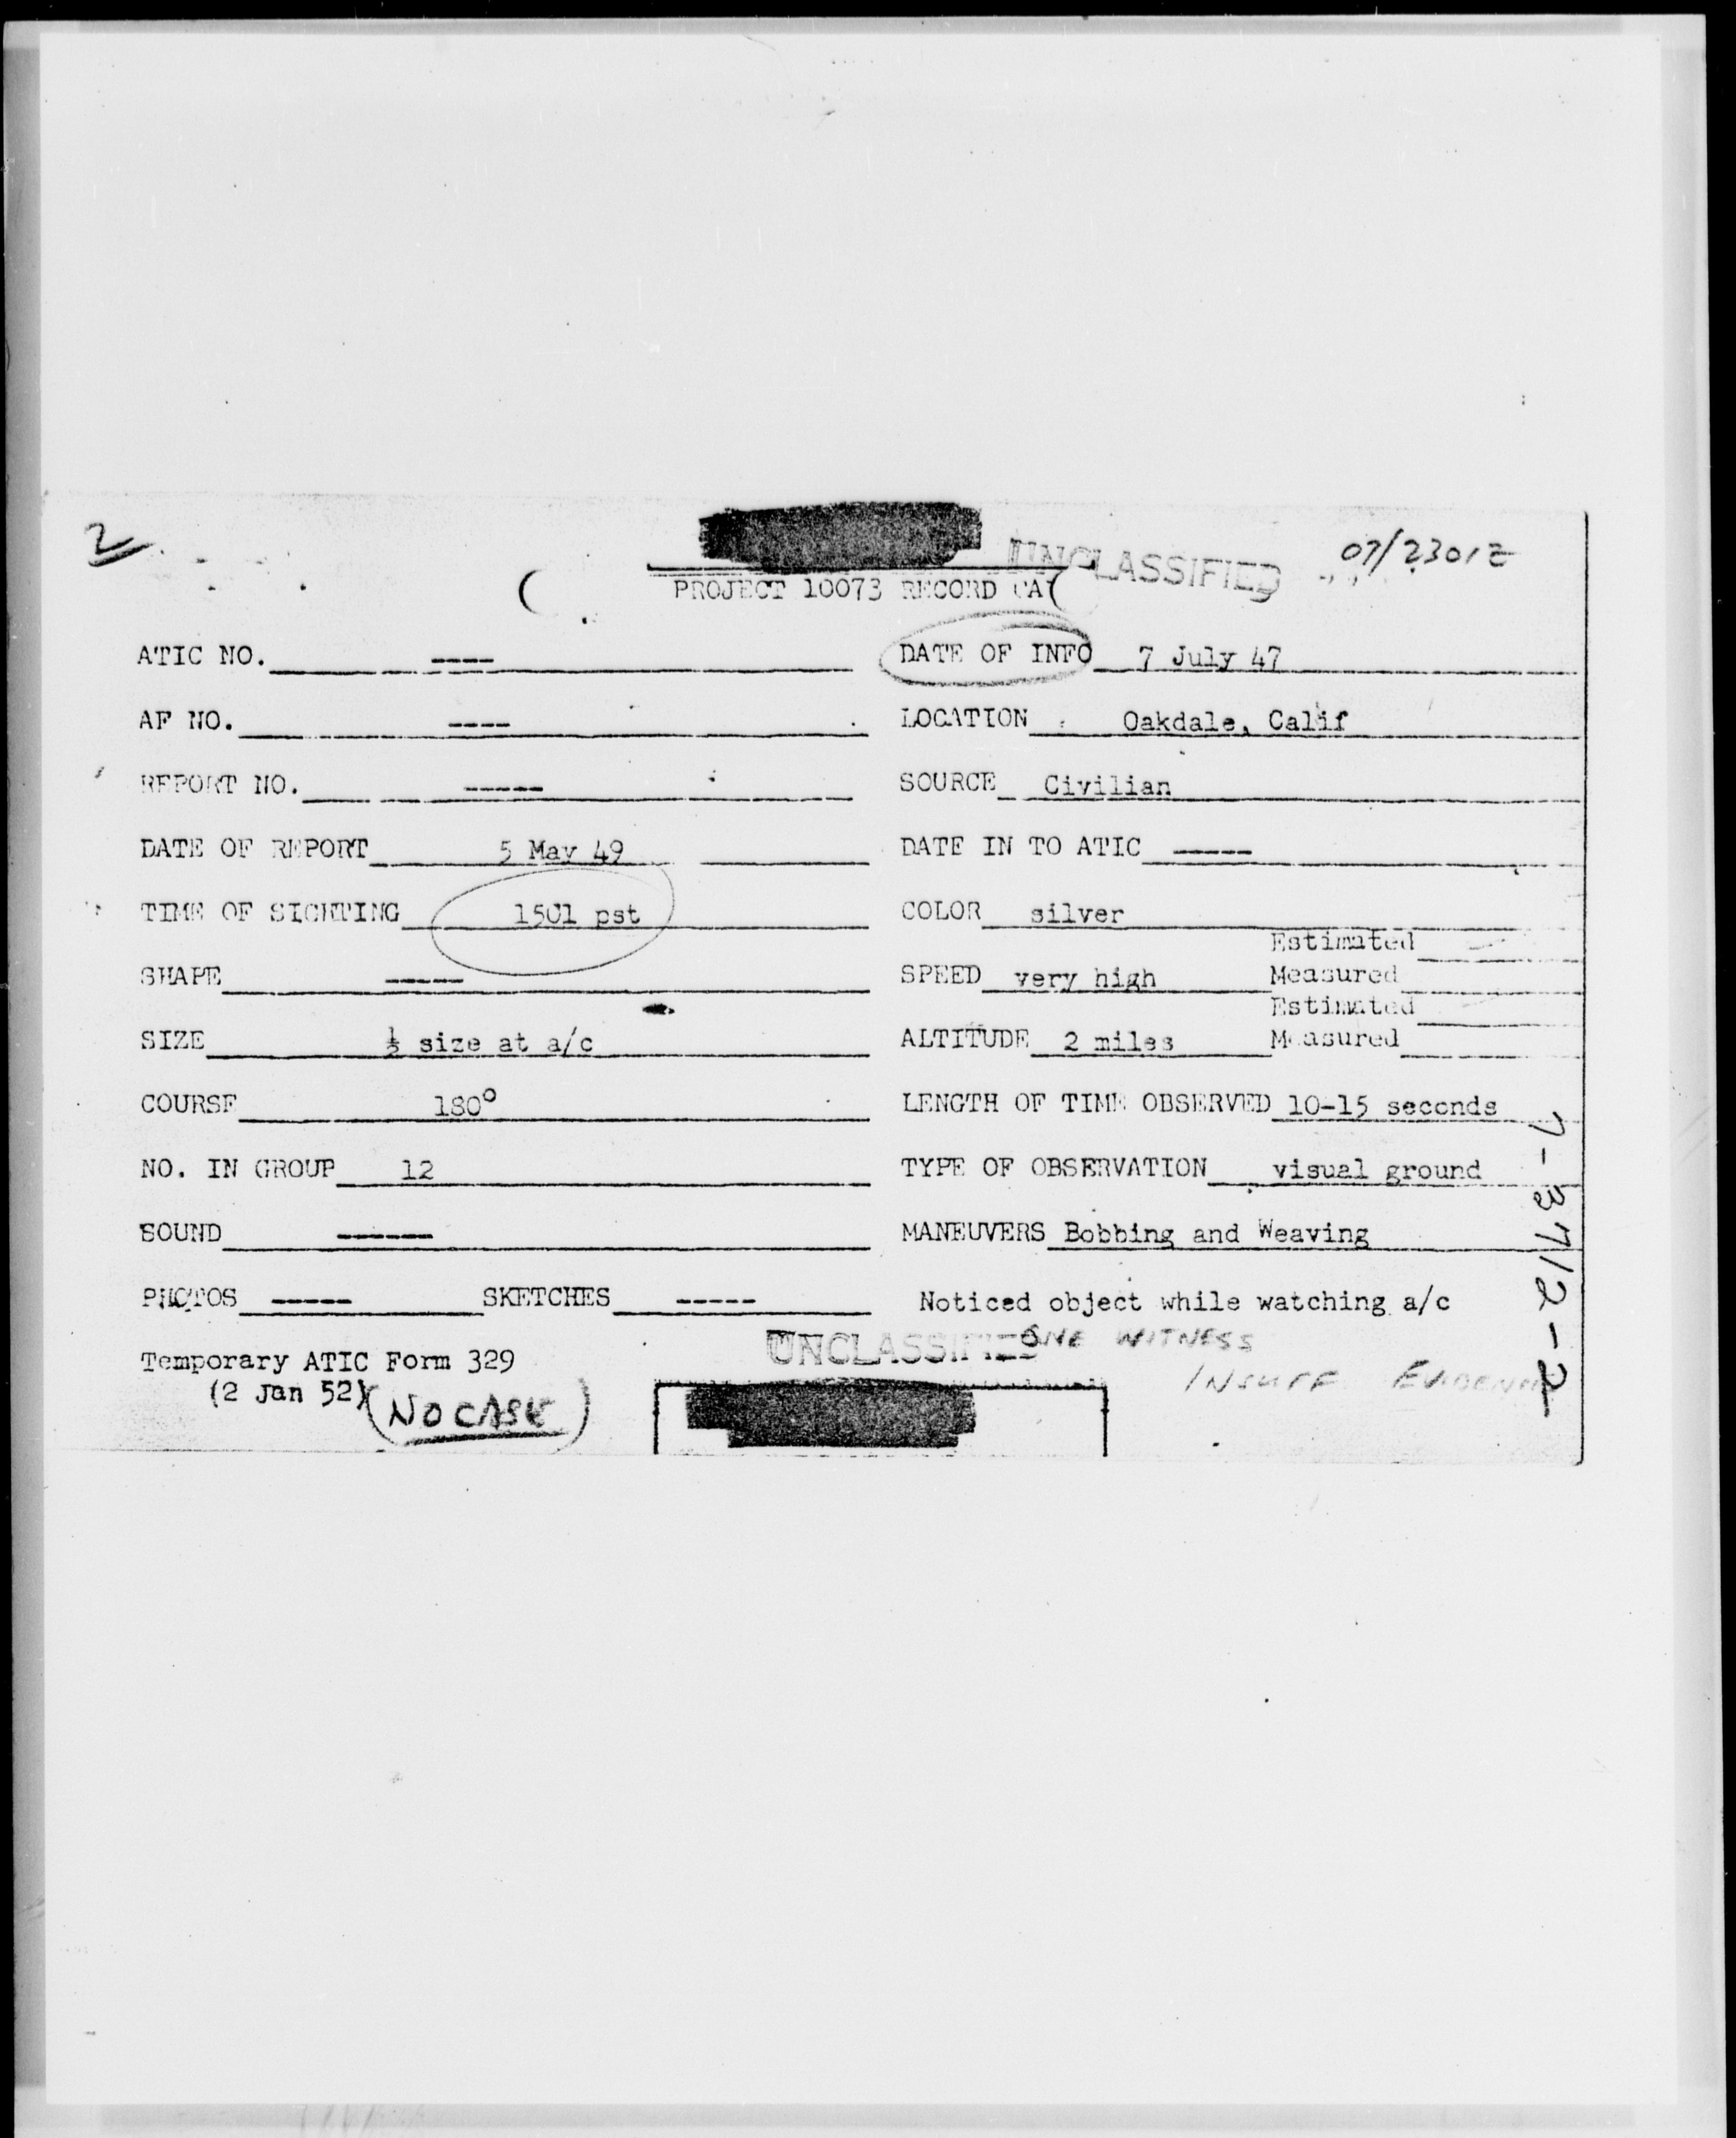 2
UNCLASSIFIED 07/2301Z
PROJECT 10073 RECORD CA
ATIC NO. ---- DATE OF INFO 7 July 47
AF NO. ---- LOCATION Oakdale, Calif
REPORT NO. ----- SOURCE Civilian
DATE OF REPORT 5 May 49 DATE IN TO ATIC -----
TIME OF SIGHTING 1501 pst COLOR silver
Estimated
SHAPE ----- SPEED very high Measured
Estimated
SIZE ½ size at a/c ALTITUDE 2 miles Measured
COURSE 180° LENGTH OF TIME OBSERVED 10-15 seconds
NO. IN GROUP 12 TYPE OF OBSERVATION visual ground
SOUND ------ MANEUVERS Bobbing and Weaving
PHOTOS ----- SKETCHES ----- Noticed object while watching a/c
UNCLASSIFIED ONE WITNESS
Temporary ATIC Form 329
INSUFF EVIDENCE
(2 Jan 52) (NO CASE)
7-3712-2